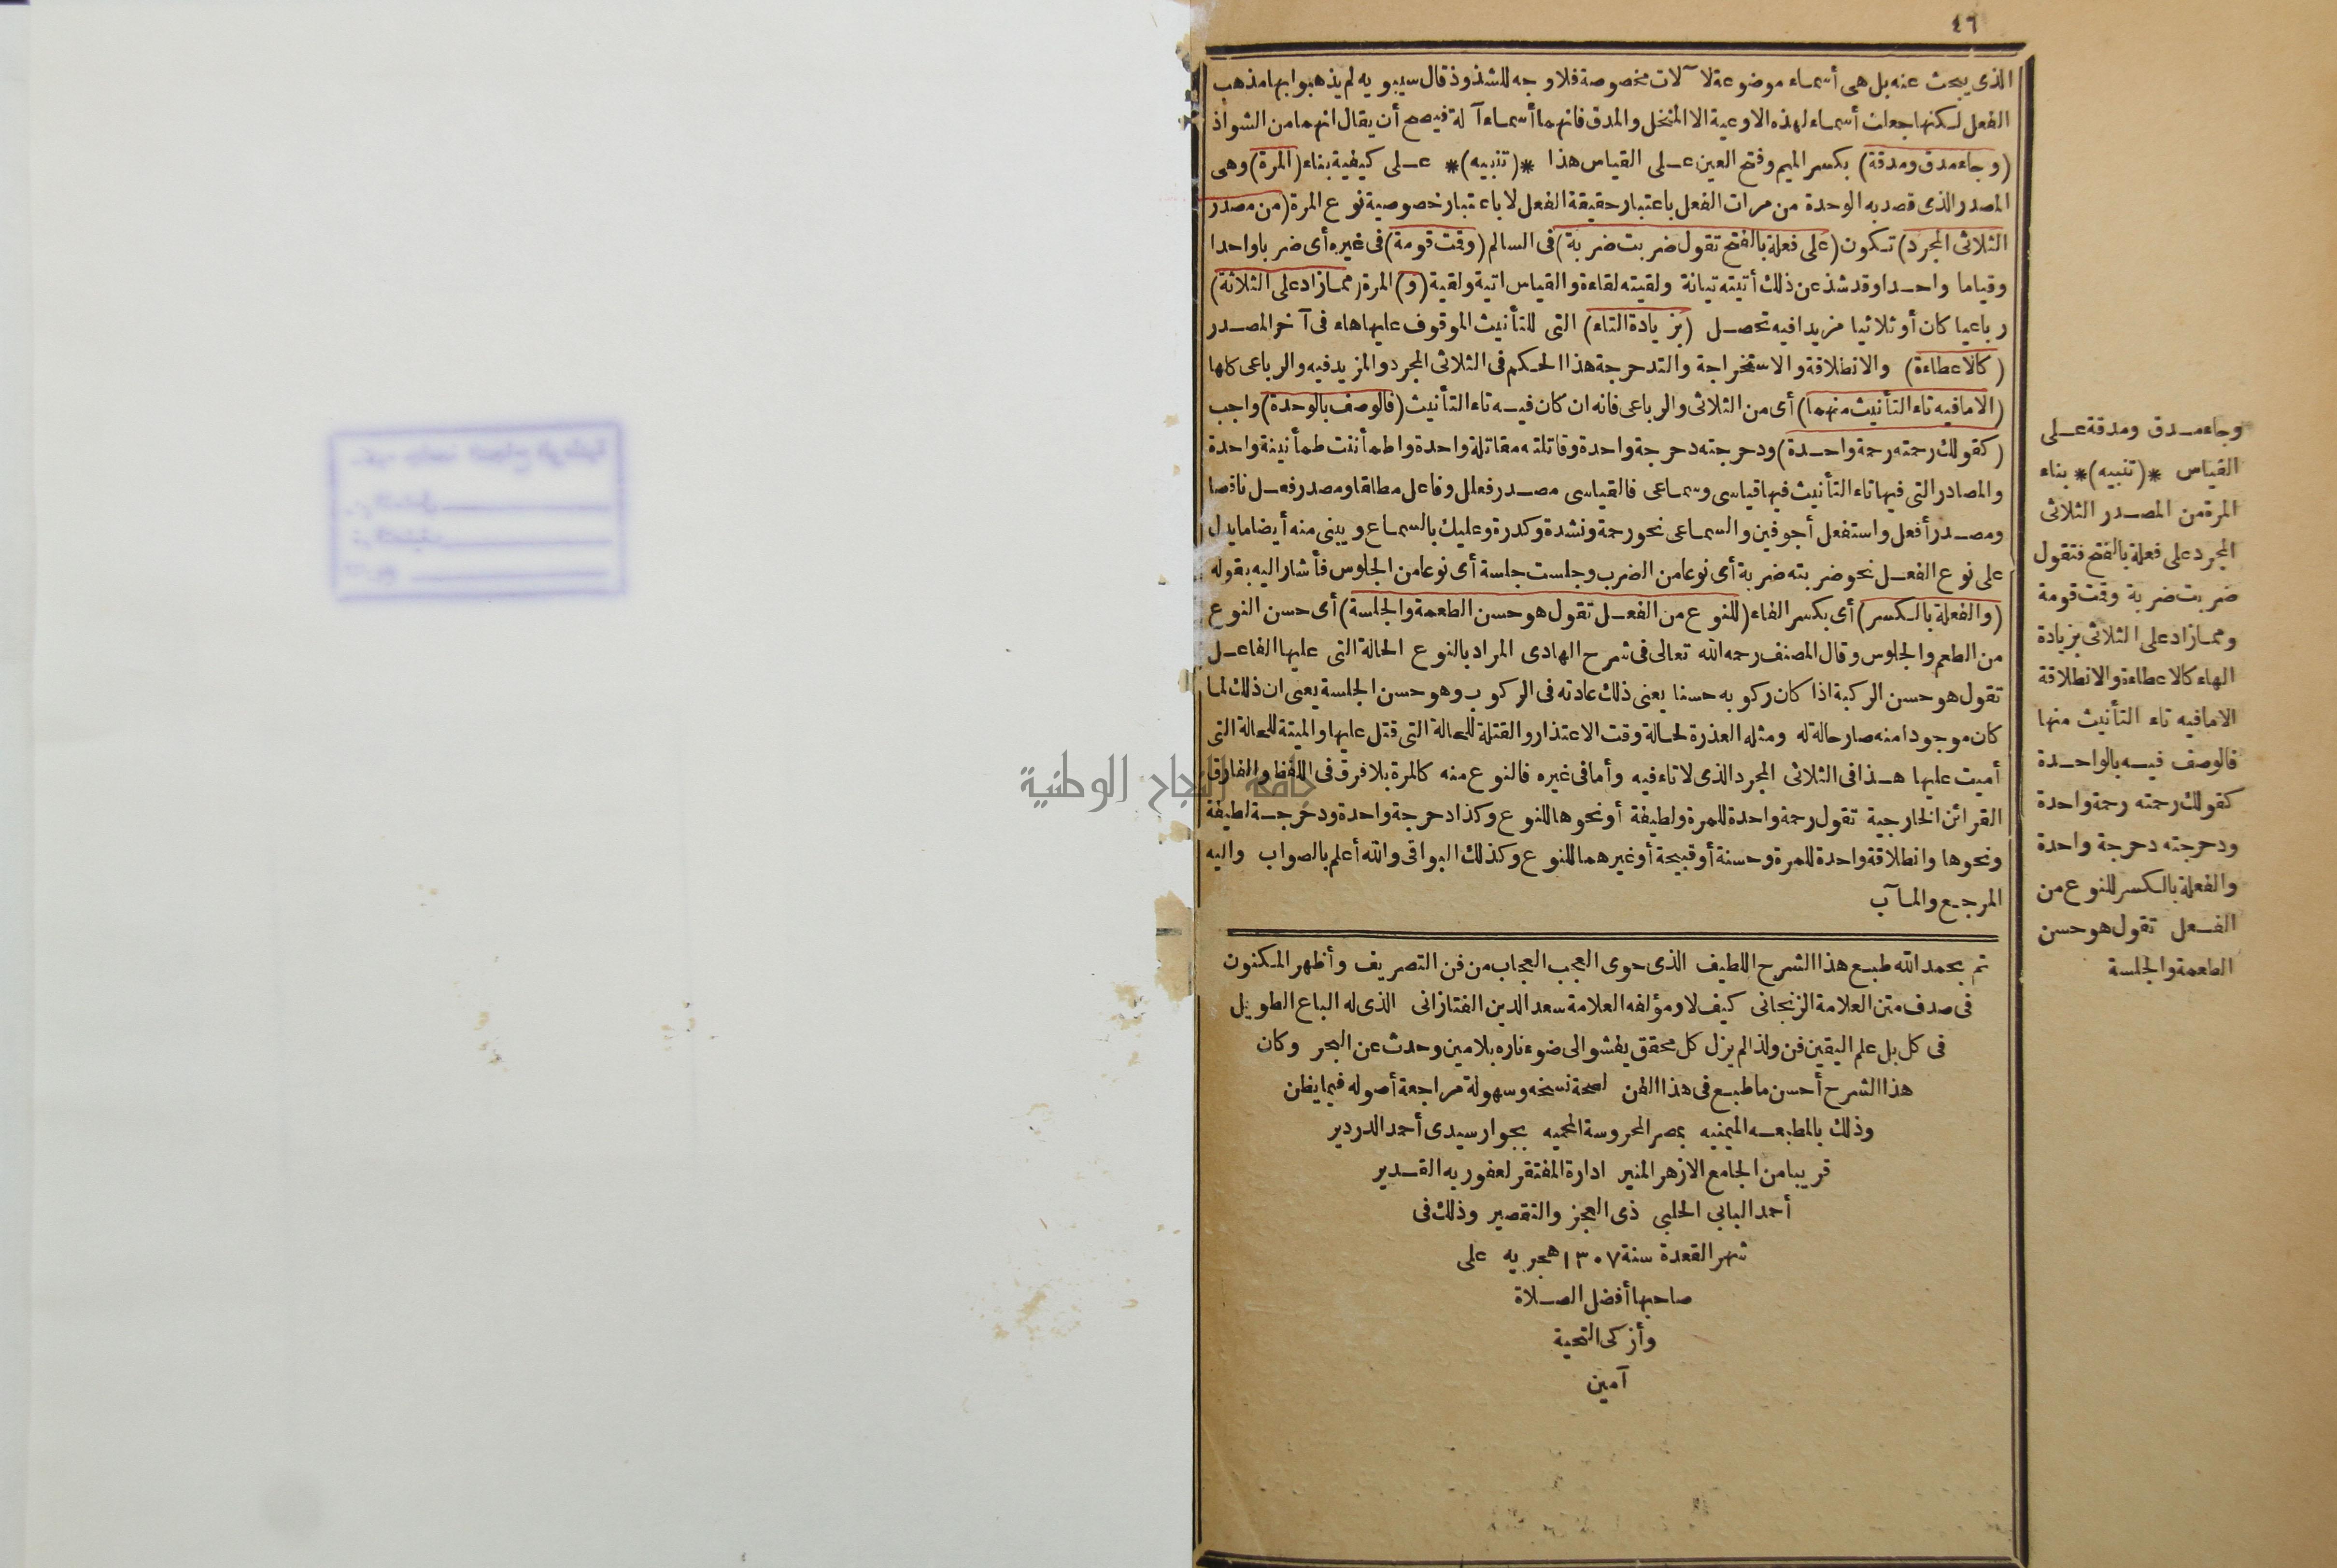 ٤٦
الذى يبحث عنه بل هى أسماء موضوعة لآلات مخصوصة فلا وجه للشذوذ قال سيبويه لم يذهبوا بها مذهب
الفعل لكنها جعلت أسماء لهذه الاوعية الا المنخل والمدق فانهما أسماء آلة فيصح أن يقال انهما من الشواذ
(وجاء مدق ومدقة) بكسر الميم وفتح العين على القياس هذا *(تنبيه)* على كيفية بناء (المرة) وهى
المصدر الذى قصد به الوحدة من مرات الفعل باعتبار حقيقة الفعل لا باعتبار خصوصية نوع المرة (من مصدر
الثلاثى المجرد) تكون (على فعلة بالفتح تقول ضربت ضربة) فى السالم (وقمت قومة) فى غيره أى ضربا واحدا
وقياما واحدا وقد شذ عن ذلك أتيته تيانة ولقيته لقاءة والقياس اتية ولقية (و) المرة (مما زاد على الثلاثة)
رباعيا كان أو ثلاثيا مزيدا فيه تحصل (بزيادة التاء) التى للتأنيث الموقوف عليها هاء فى آخر المصدر
(كالاعطاءة) والانطلاقة والاستخراجة والتدحرجة هذا الحكم فى الثلاثى المجرد والمزيد فيه والرباعى كلها
(الا ما فيه تاء التأنيث منهما) أى من الثلاثى والرباعى فانه ان كان فيه تاء التأنيث (فالوصف بالوحدة) واجب
(كقولك رحمته رحمة واحدة) ودحرجته دحرجة واحدة وقاتلته مقاتلة واحدة واطمأننت طمأنينة واحدة
والمصادر التى فيها تاء التأنيث فيها قياسى وسماعى فالقياسى مصدر فعلل وفاعل مطلقا ومصدر فعل ناقصا
ومصدر أفعل واستفعل أجوفين والسماعى نحو رحمة ونشدة وكدرة وعليك بالسماع ويبنى منه أيضا ما يدل
على نوع الفعل نحو ضربته ضربة أى نوعا من الضرب وجلست جلسة أى نوعا من الجلوس فأشار اليه بقوله
(والفعلة بالكسر) أى بكسر الفاء (للنوع من الفعل تقول هو حسن الطعمة والجلسة) أى حسن النوع
من الطعم والجلوس وقال المصنف رحمه الله تعالى فى شرح الهادى المراد بالنوع الحالة التى عليها الفاعل
تقول هو حسن الركبة اذا كان ركوبه حسنا يعنى ذلك عادته فى الركوب وهو حسن الجلسة يعنى ان ذلك لما
كان موجودا منه صار حالة له ومثله العذرة لحالة وقت الاعتذار والقتلة للحالة التى قتل عليها والميتة للحالة التى
أميت عليها هذا فى الثلاثى المجرد الذى لا تاء فيه وأما فى غيره فالنوع منه كالمرة بلا فرق فى اللفظ والفارق
القرائن الخارجية تقول رحمة واحدة للمرة ولطيفة أو نحوها للنوع وكذا دحرجة واحدة ودحرجة لطيفة
ونحوها وانطلاقة واحدة للمرة وحسنة أو قبيحة أو غيرهما للنوع وكذلك البواقى والله أعلم بالصواب واليه
المرجع والمآب
وجاء مدق ومدقة على
القياس *(تنبيه)* بناء
المرة من المصدر الثلاثى
المجرد على فعلة بالفتح فتقول
ضربت ضربة وقمت قومة
ومما زاد على الثلاثى بزيادة
الهاء كالاعطاءة والانطلاقة
الا ما فيه تاء التأنيث منها
فالوصف فيه بالواحدة
كقولك رحمته رحمة واحدة
ودحرجته دحرجة واحدة
والفعلة بالكسر للنوع من
الفعل تقول هو حسن
الطعمة والجلسة
تم بحمد الله طبع هذا الشرح اللطيف الذى حوى العجب العجاب من فن التصريف وأظهر المكنون
فى صدف متن العلامة الزنجانى كيف لا ومؤلفه العلامة سعد الدين الفتازانى الذى له الباع الطويل
فى كل بل علم اليقين فن ولذا لم يزل كل محقق يفشو الى ضوء ناره بلامين وحدث عن البحر وكان
هذا الشرح أحسن ما طبع فى هذا الفن لصحة نسخه وسهولة مراجعة أصوله فيما يظن
وذلك بالمطبعه الميمنيه بمصر المحروسة المحميه بجوار سيدى أحمد الدردير
قريبا من الجامع الازهر المنير ادارة المفتقر لعفو ربه القدير
أحمد البابى الحلبى ذى العجز والتقصير وذلك فى
شهر القعدة سنة ١٣٠٧ هجريه على
صاحبها أفضل الصلاة
وأزكى التحية
آمين
جامعة النجاح الوطنية